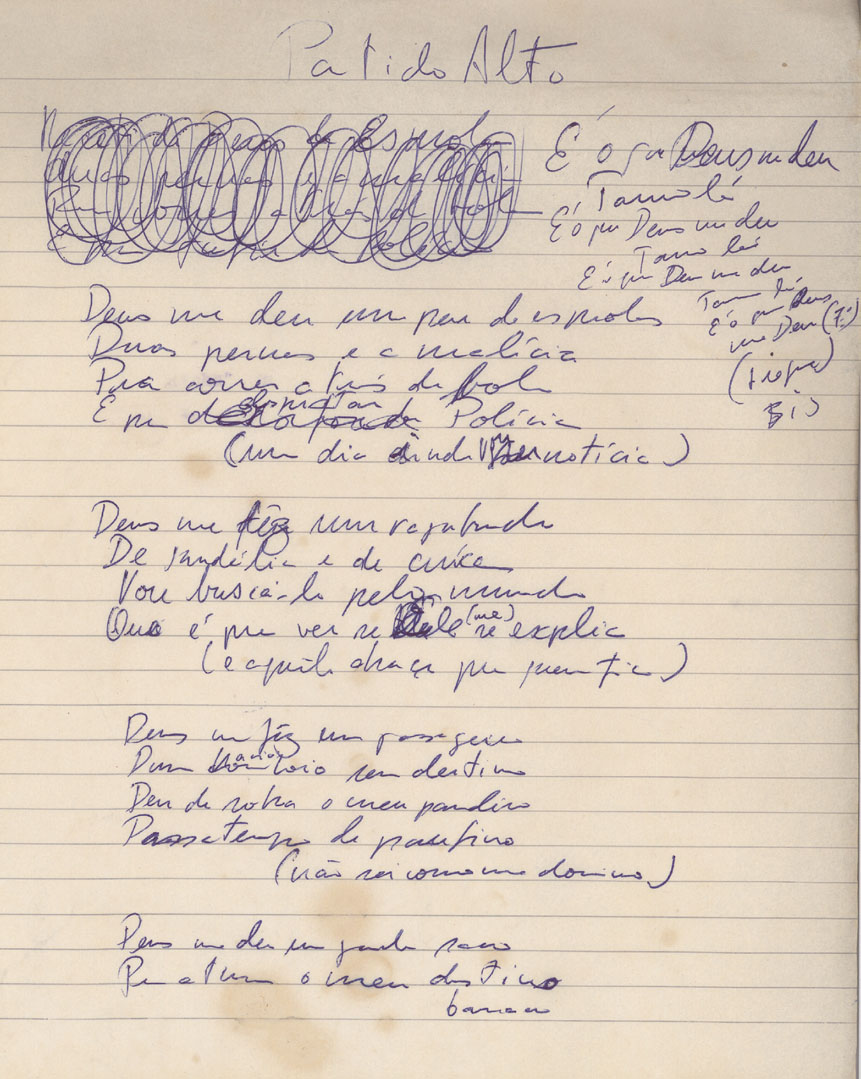 Partido Alto
É o que Deus me deu
Tamo lá
É o que Deus me deu
Tamo lá
É o que Deus me deu
Tamo lá
É o que Deus
me Deu
Bis
Deus me deu um par de
Duas pernas e a malícia
Pra correr atrás da bola
E pra Polícia
(um dia ainda notícia)
Deus me fêz um vagabundo
De sandália e de cuíca
Vou buscá-lo pelo mundo
Que é pra ver se Ele (me) se explica
(e aquele abraço pra quem fica)
Deus me fêz um passageiro
Dum avião sem destino
Deu de sobra o meu pandeiro
Passatempo de
(não sei como me domino)
Deus me deu um
Pra o meu destino